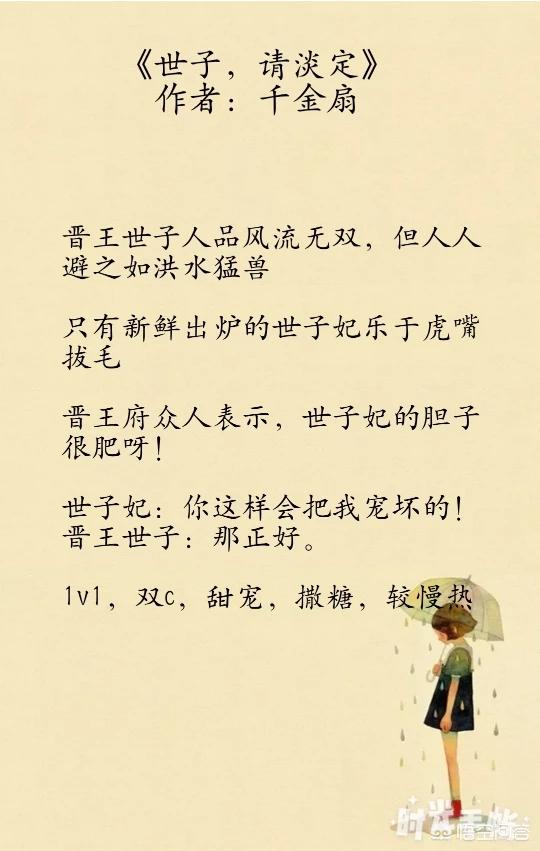 《世子，请淡定》
作者：千金扇
晋王世子人品风流无双，但人人
避之如洪水猛兽
只有新鲜出炉的世子妃乐于虎嘴
拔毛
晋王府众人表示，世子妃的胆子
很肥呀！
世子妃：你这样会把我宠坏的！
晋王世子：那正好。
1v1，双c，甜宠，撒糖，较慢热
时光手帐
悟空问答